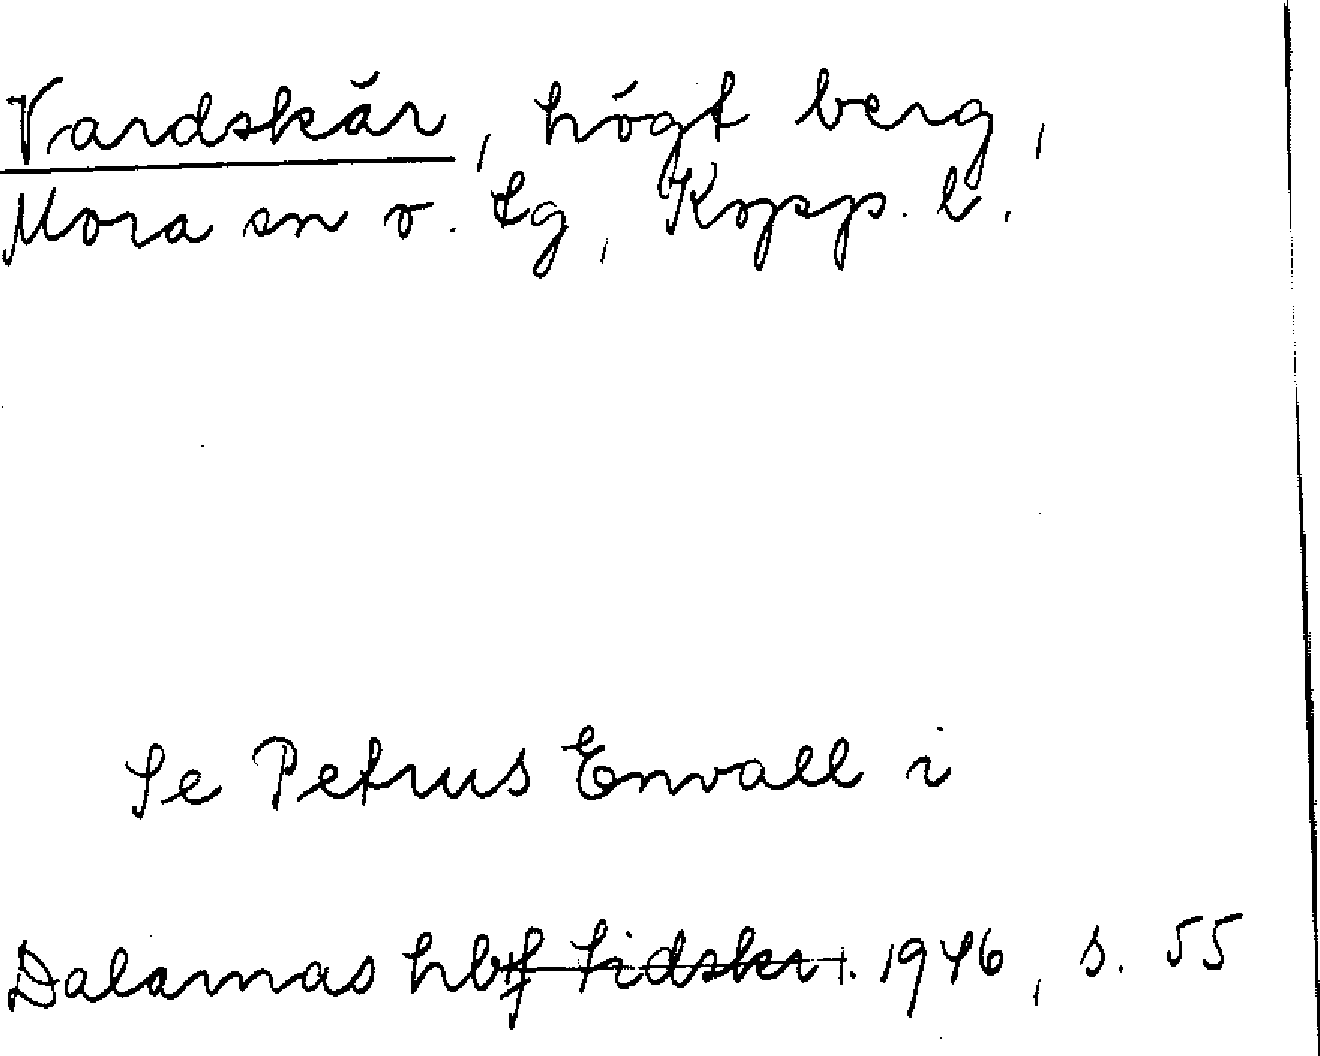 Vardskär, högt berg,
Mora sn o. tg, Kopp. l.
Se Petrus Envall i
Dalarnas hbf tidskr. 1946, s. 55